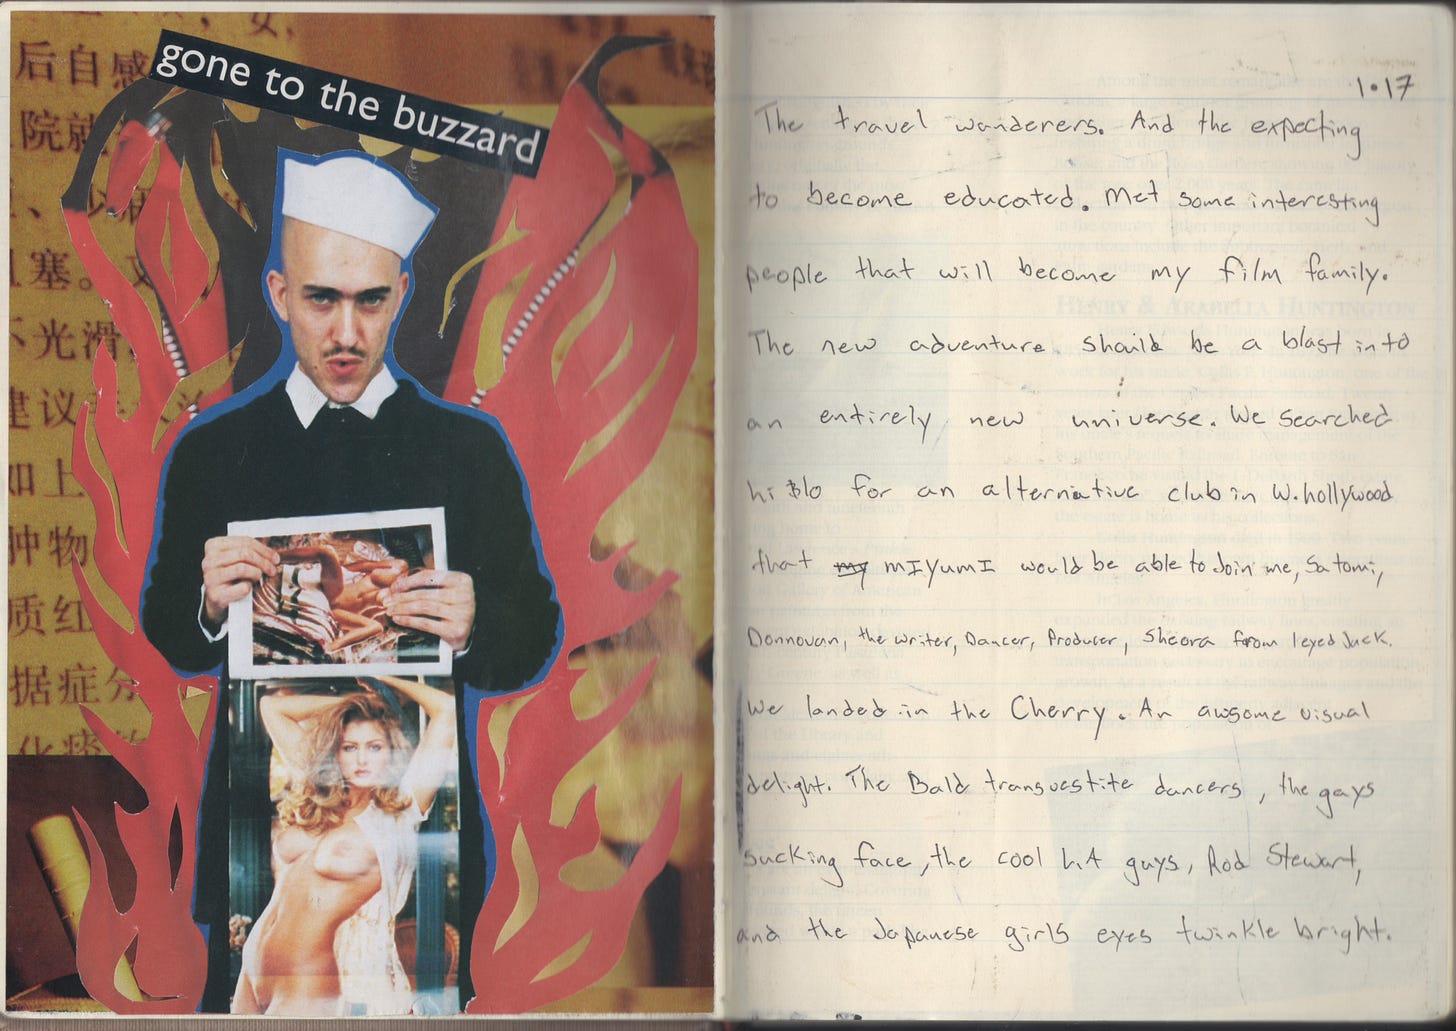 gone to the buzzard
后自感
院就
塞。
不光滑
建议
如上
肿物
质红
据症分
1•17
The travel wanderers. And the expecting
to become educated. Met some interesting
people that will become my film family.
The new adventure. Should be a blast into
an entirely new universe. We searched
hi $ lo for an alternative club in W. hollywood
that my mIyumI would be able to Join me, Satomi,
Donnovan, the writer, Dancer, Producer, Sheora from 1 eyed Jack.
We landed in the Cherry. An awsome visual
delight. The Bald transvestite dancers, the gays
sucking face, the cool L.A guys, Rod Stewart,
and the Japanese girls eyes twinkle bright.
HENRY & ARABELLA HUNTINGTON